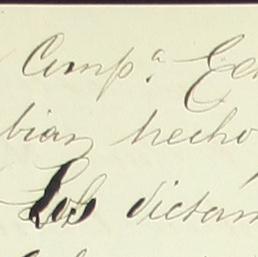 Compª Ec
bian hecho,
Los dictám